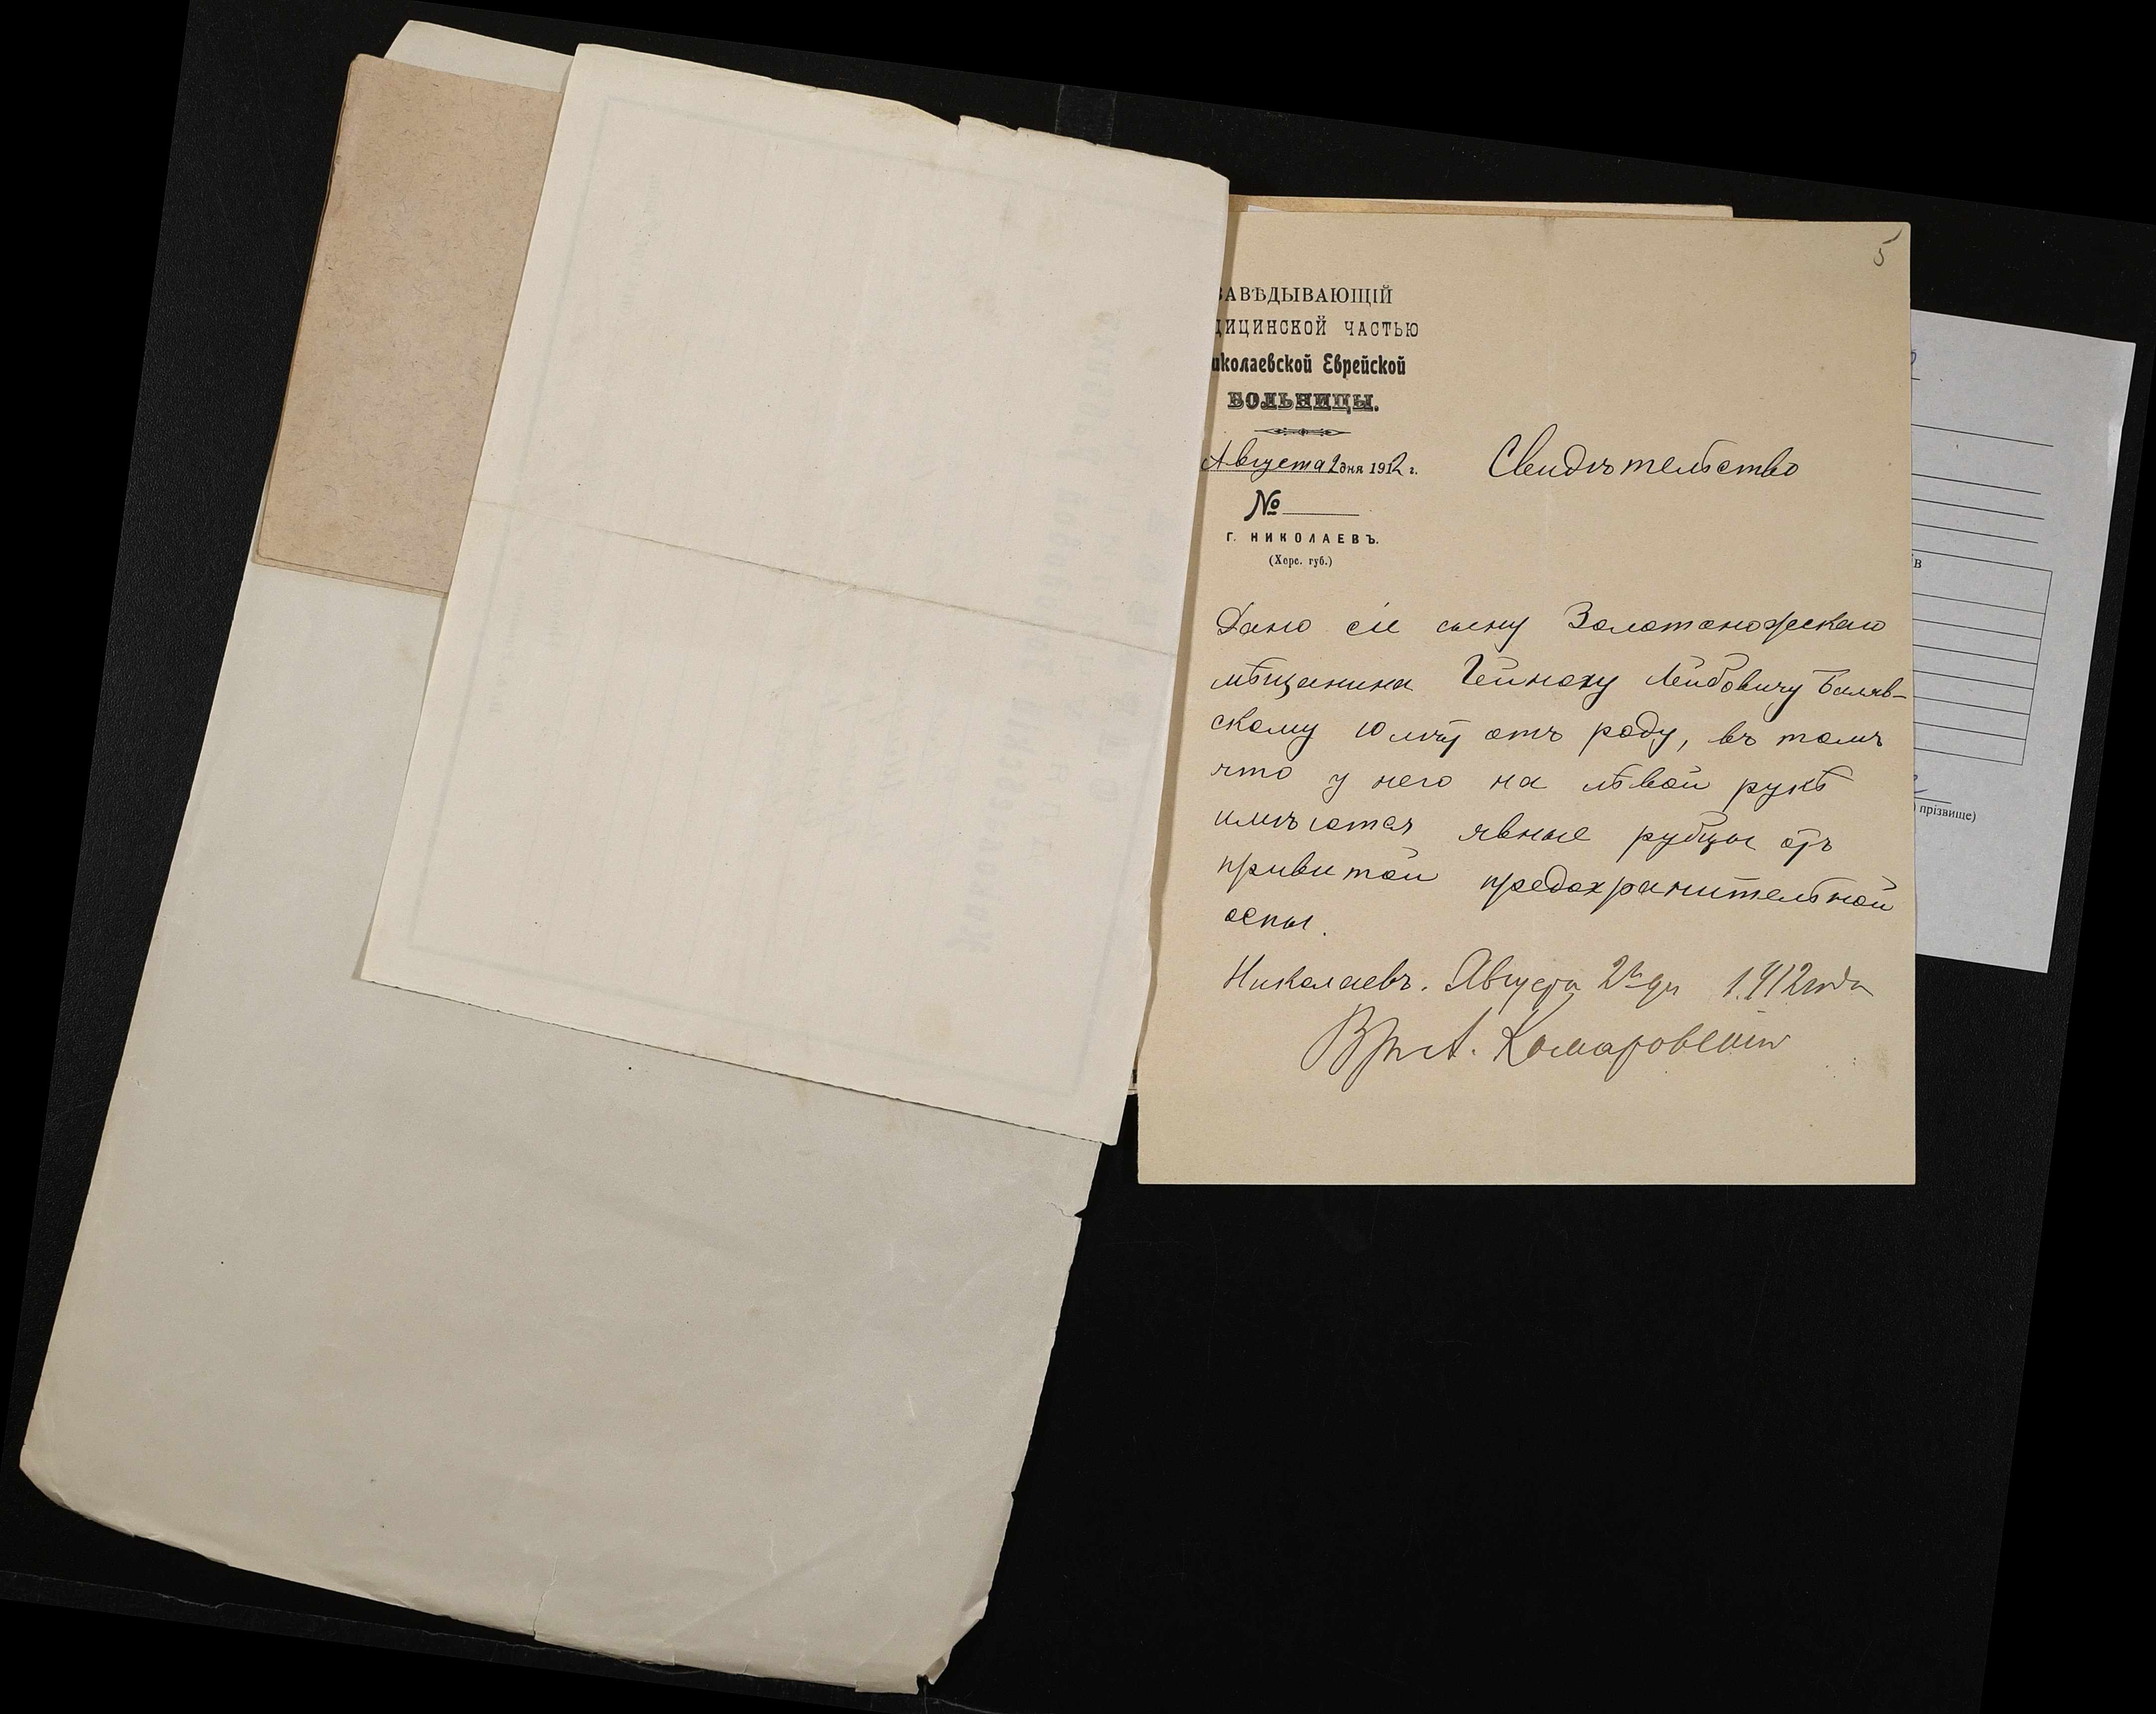 5
ЗАВѢДЫВАЮЩІЙ
ДИЦИНСКОЙ ЧАСТЬЮ
иколаевской Еврейской
БОЛЬНИЦЫ.
Августа 2 дня 1912 г.
Свидѣтельство
№
Г. НИКОЛАЕВЪ.
(Херс. губ.)
Дано сіе сыну Золотоножскаго
мѣщанина Гейноху Лейбовичу Баляв-
скому 10 лѣтъ отъ роду, въ томъ
что у него на лѣвой рукѣ
имѣются явные рубцы отъ
привитой предохранительной
оспы.
Николаевъ. Августа 2го дня 1912 года
Врач А. Комаровскій
в
) прізвище)